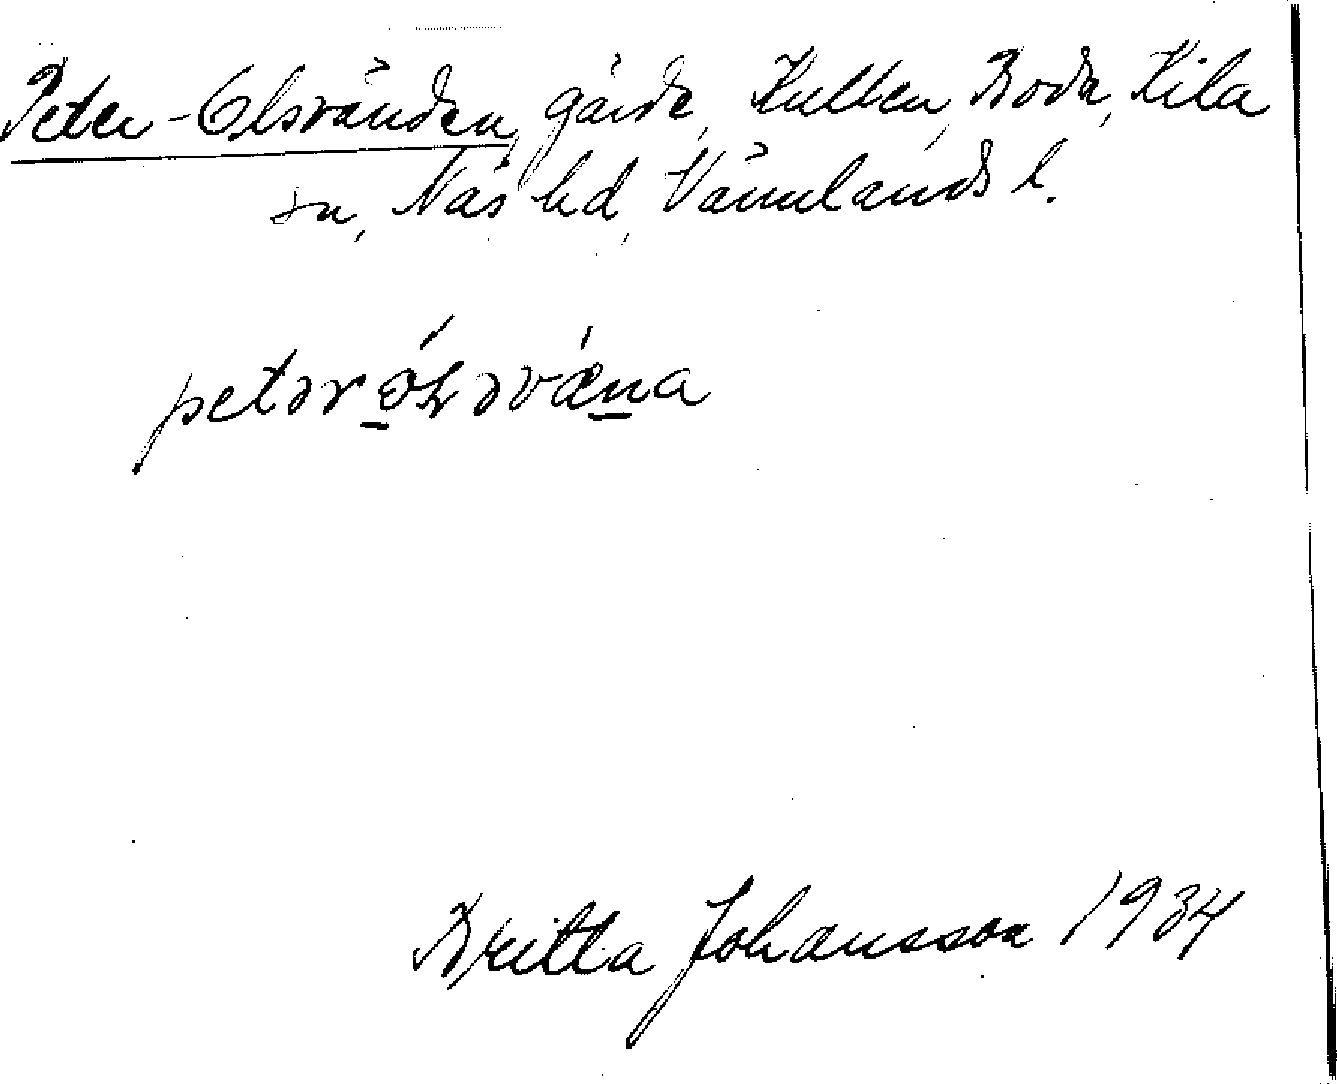 Peter-Olsvänden, gärde, Kullen, Boda, Kila
sn, Näs hd, Värmlands l.
petər
Britta Johansson 1934